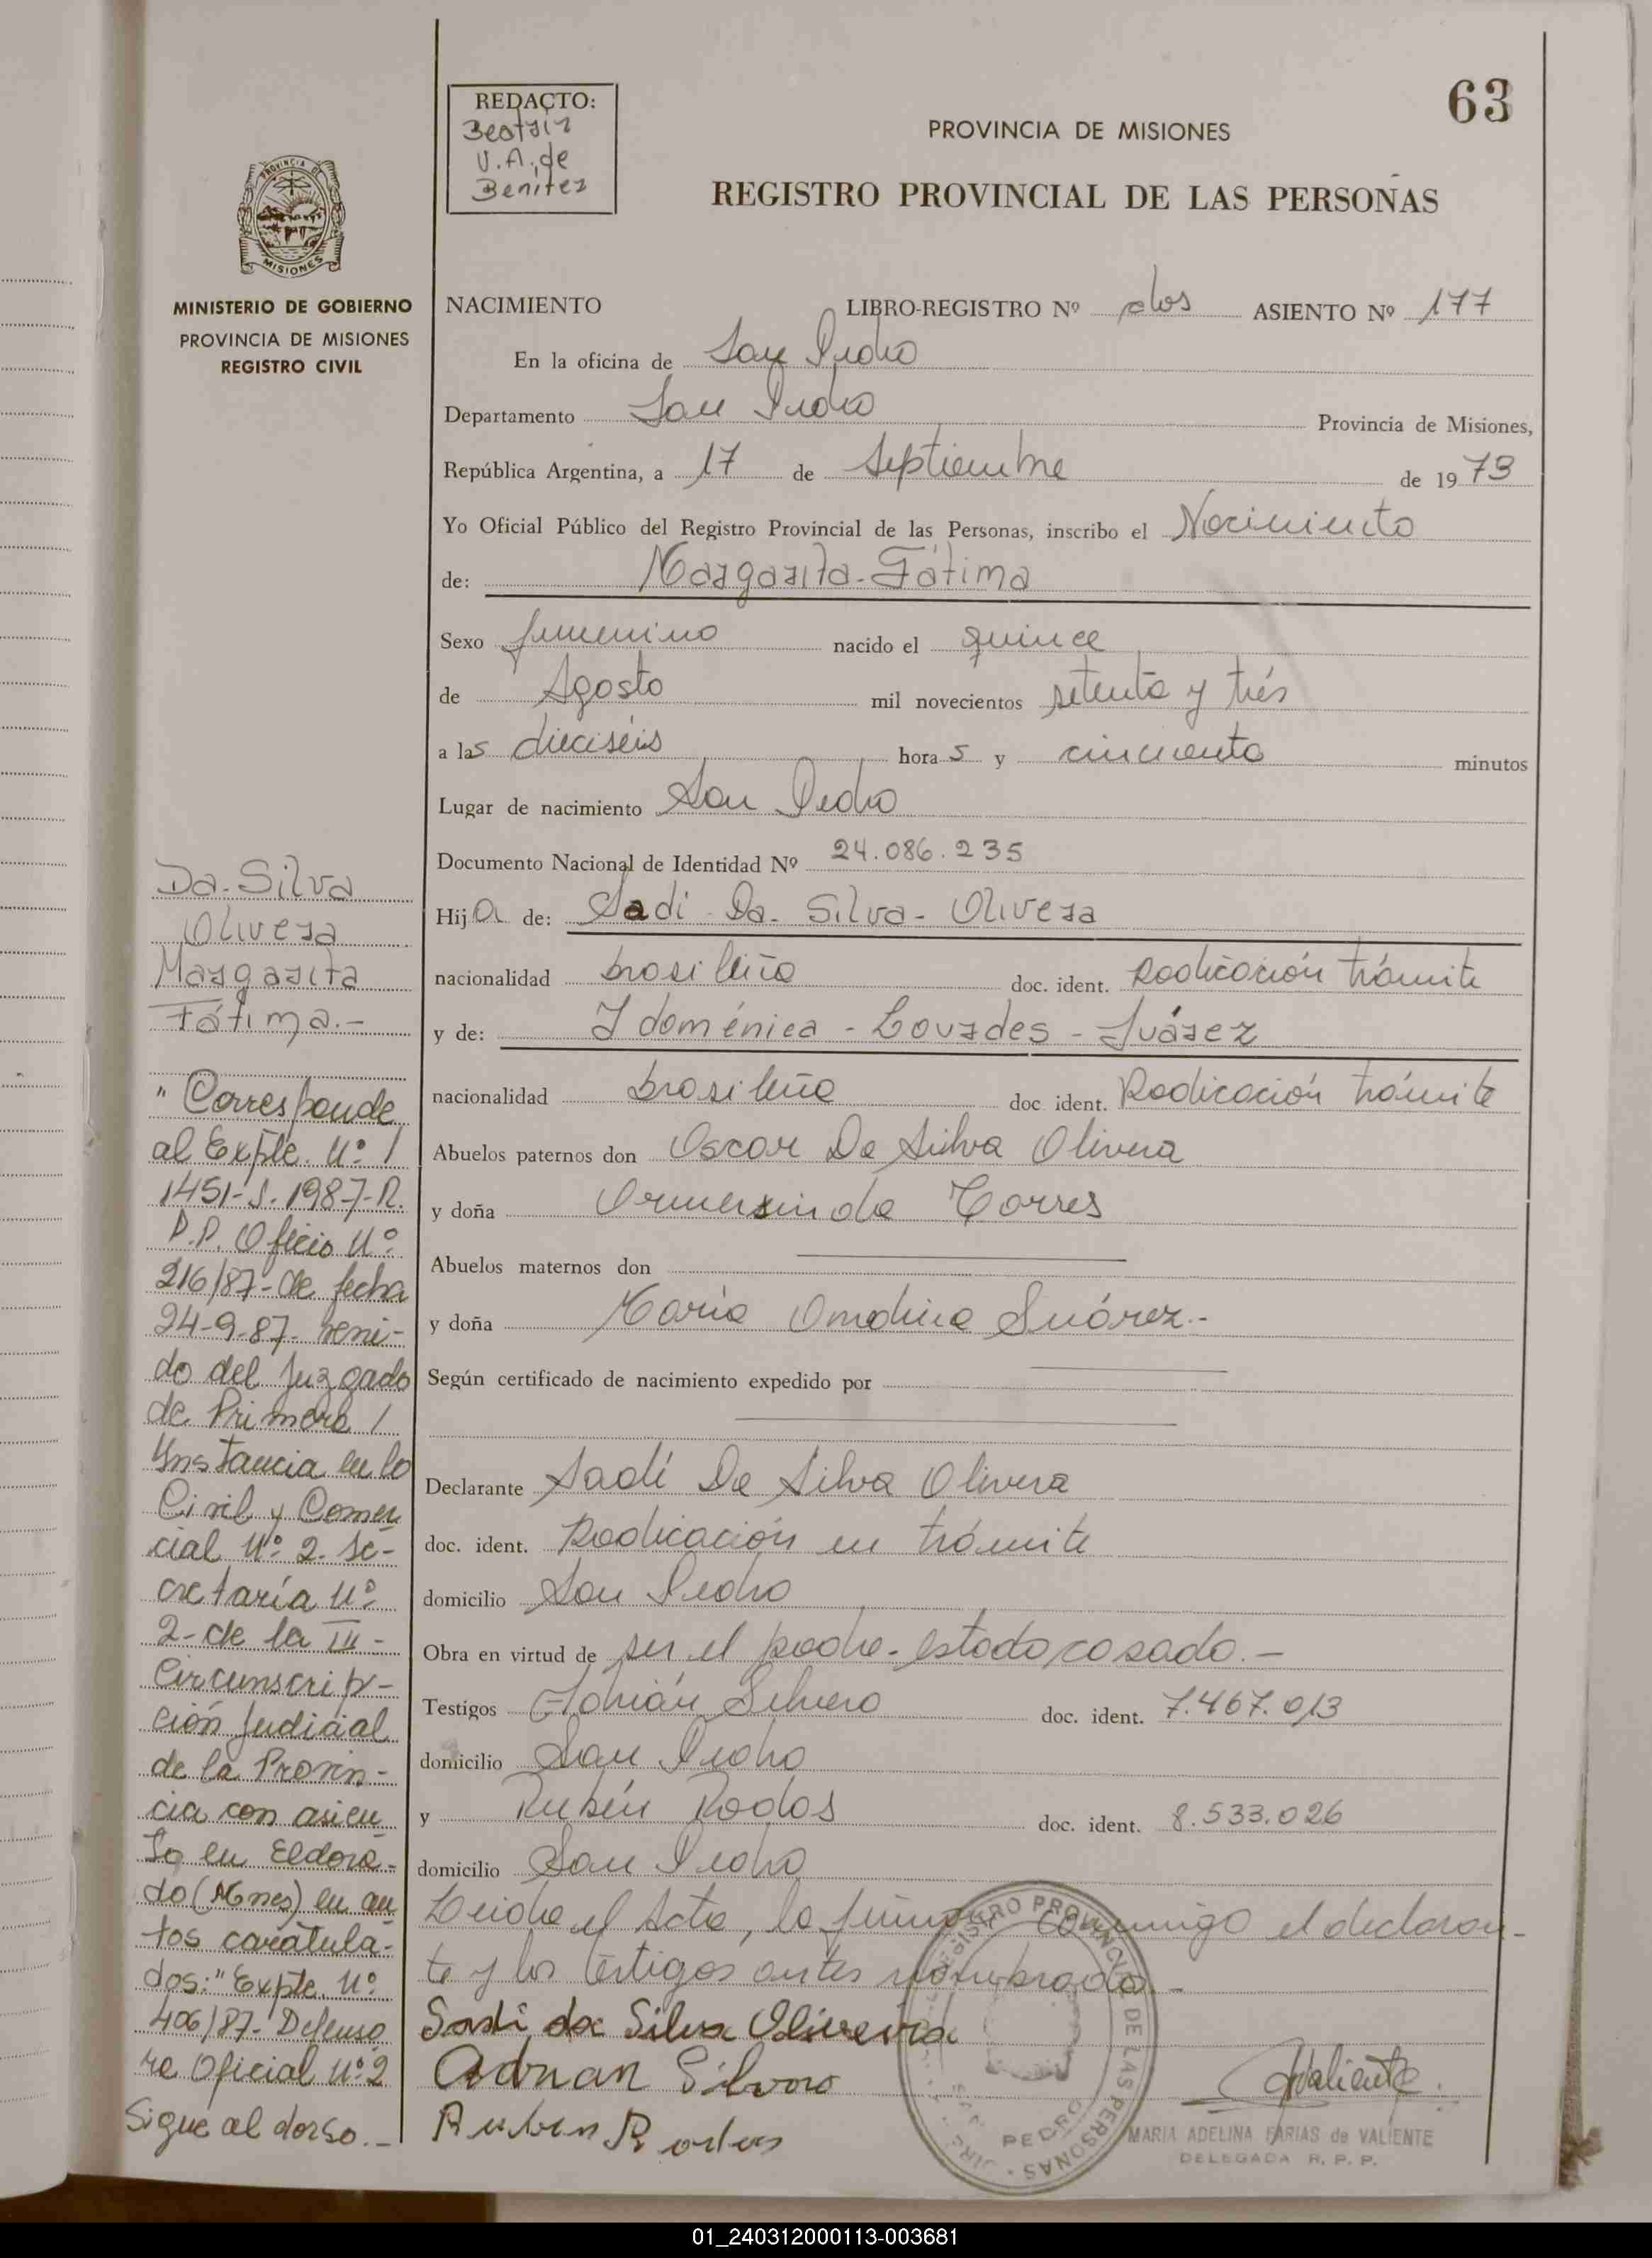 63
REDACTO:
Beatriz
V.A. de
Benítez
PROVINCIA DE MISIONES
REGISTRO PROVINCIAL DE LAS PERSONAS
PROVINCIA DE
MISIONES
MINISTERIO DE GOBIERNO
PROVINCIA DE MISIONES
REGISTRO CIVIL
NACIMIENTO LIBRO-REGISTRO Nº dos ASIENTO Nº 177
En la oficina de San Pedro
Departamento San Pedro Provincia de Misiones,
República Argentina, a 17 de Septiembre de 1973
Yo Oficial Público del Registro Provincial de las Personas, inscribo el Nacimiento
de: Margarita-Fátima
Sexo femenino nacido el quince
de Agosto mil novecientos setenta y trés
a las dieciséis horas y cincuenta minutos
Lugar de nacimiento San Pedro
Documento Nacional de Identidad Nº 24.086.235
Hija de: Sadi-Da-Silva-Olivera
nacionalidad brasileña doc. ident. Radicación trámite
y de: Idoménica-Lourdes-Juárez
nacionalidad brasileña doc. ident. Radicación trámite
Abuelos paternos don Oscar Da Silva Olivera
y doña Ormensinda Torres
Abuelos maternos don
y doña María Suárez.-
Según certificado de nacimiento expedido por
Declarante Sadí Da Silva Olivera
doc. ident. Radicación en trámite
domicilio San Pedro
Obra en virtud de ser el padre-estado casado.-
Testigos Adrián Silvero doc. ident. 7.467.013
domicilio San Pedro
y Rubén Rodas doc. ident. 8.533.026
domicilio San Pedro
Leida el Acta, la firma conmigo el declaran-
te y los testigos antes nombrado.-
Sadi da Silva Oliveira
Adrian Silvero
Ruben Rodas
Valiente.
MARIA ADELINA FARIAS de VALIENTE
DELEGADA R. P. P.
REGISTRO PROVINCIAL DE LAS PERSONAS
PEDRO
Da-Silva
Olivera
Margarita
Fátima.-
"Corresponde
al Expte. Nº /
1451-S-1987-R.
P.P. Oficio Nº
216/87-de fecha
24-9-87- veni-
do del Juzgado
de Primera /
Instancia en lo
Civil y Comer
cial Nº 2. Se-
cretaría Nº
2-de la III-
Circunscrip-
ción Judicial
de la Provin-
cia con asien
to en Eldora-
do (Mnes) en au
tos caratula-
dos:"Expte. Nº
406/87-Defenso
ra Oficial Nº 2
Sigue al dorso.-
01_240312000113-003681